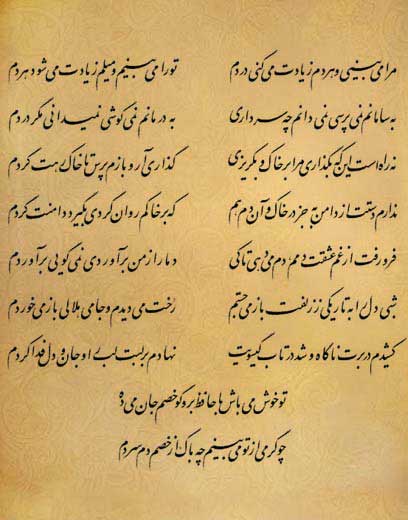 مرا می بینی و هر دم زیادت می کنی دردم تو را می بینم و میلم زیادت می شود هر دم
به سامانم نمی پرسی نمی دانم چه سر داری به درمانم نمی کوشی نمیدانی مگر دردم
نه راه است این که بگذاری مرا بر خاک و بگریزی گذاری آر و بازم پرس تا خاک رهت گردم
ندارم دستت از دامن به جز در خاک و آن دم هم که بر خاکم روان گردی بگیرد دامنت گردم
فرو رفت از غم عشقت دمم دم می دهی تا کی دمار از من برآوردی نمی گویی برآوردم
شبی دل را به تاریکی ز زلفت باز می جستم رخت می دیدم و جامی هلالی باز می خوردم
کشیدم در برت ناگاه و شد در تاب گیسویت نهادم بر لبت لب را و جان و دل فدا کردم
تو خوش می باش با حافظ برو گو خصم جان می ده
چو گرمی از تو می بینم چه باک از خصم دم سردم